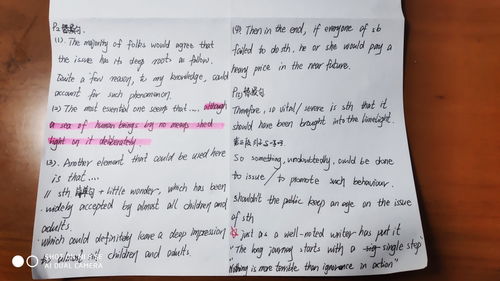 P2 替换句.
(1). The majority of folks would agree that
the issue has its deep root as follow.
Quite a few reason, to my knowledge, could
account for such phenomenon.
(2) The most essential one seems that.... although
a sea of human beings by no means shed
light on it deliberately.
(3). Another element that could be used here
is that....
// sth + little wonder, which has been
widely accepted by almost all children and
adults.
which could definitely leave a deep impression
to almost all children and adults.
(4) Then in the end, if everyone of sb
failed to do sth, he or she would pay a
heavy price in the near future.
P(3) 替换句
Therefore, so vital/severe is sth that it
should have been brought into the limelight.
So something, undoubtedly, could be done
to issue / to promote such behaviour.
Shouldn't the public keep an age on the issue
of sth
just as a well-noted writer has put it
"The long journey starts with a single step"
"Nothing is more terrible than ignorance in action"
SHOT ON MI
AI DUAL CAMERA